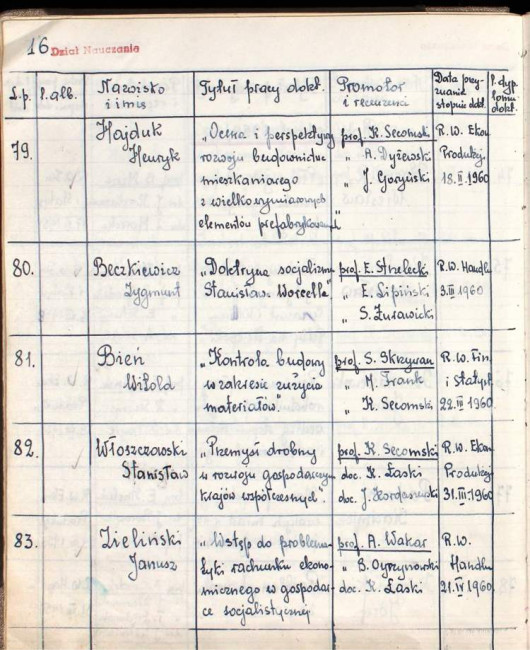 16 Dział Nauczania
L.p. L.alb. Nazwisko i imię Tytuł pracy dokt. Promotor i recenzenci Data przyznania stopnia dokt. L.dyplomu dokt.
79. Hajduk „Ocena i perspektywy prof. K. Secomski R.W. Ekon.
Henryk rozwoju budownictwa „ A. Dyżewski Produkcji
mieszkaniowego „ J. Goryński 18.II.1960
z wielkowymiarowych
elementów prefabrykowanych"
80. Beczkiewicz „Doktryna socjalizmu prof. E. Strzelecki R.W. Handlu
Zygmunt Stanisława Worcella" „ E. Lipiński 3.III.1960
„ S. Żurawicki
81. Bień „Kontrola budowy prof. S. Skrzywan R.W. Fin.
Witold w zakresie zużycia „ M. Frank i Statyst.
materiałów". „ K. Secomski 22.III.1960.
82. Włoszczowski „Przemysł drobny prof. K. Secomski R.W. Ekon.
Stanisław w rozwoju gospodarczym doc. K. Łaski Produkcji
krajów współczesnych". doc. J. 31.III.1960
83. Zieliński „Wstęp do problema- prof. A. Wakar R.W.
Janusz tyki rachunku ekono- „ B. Handlu
micznego w gospodar- doc. K. Łaski 21.IV.1960.
ce socjalistycznej.